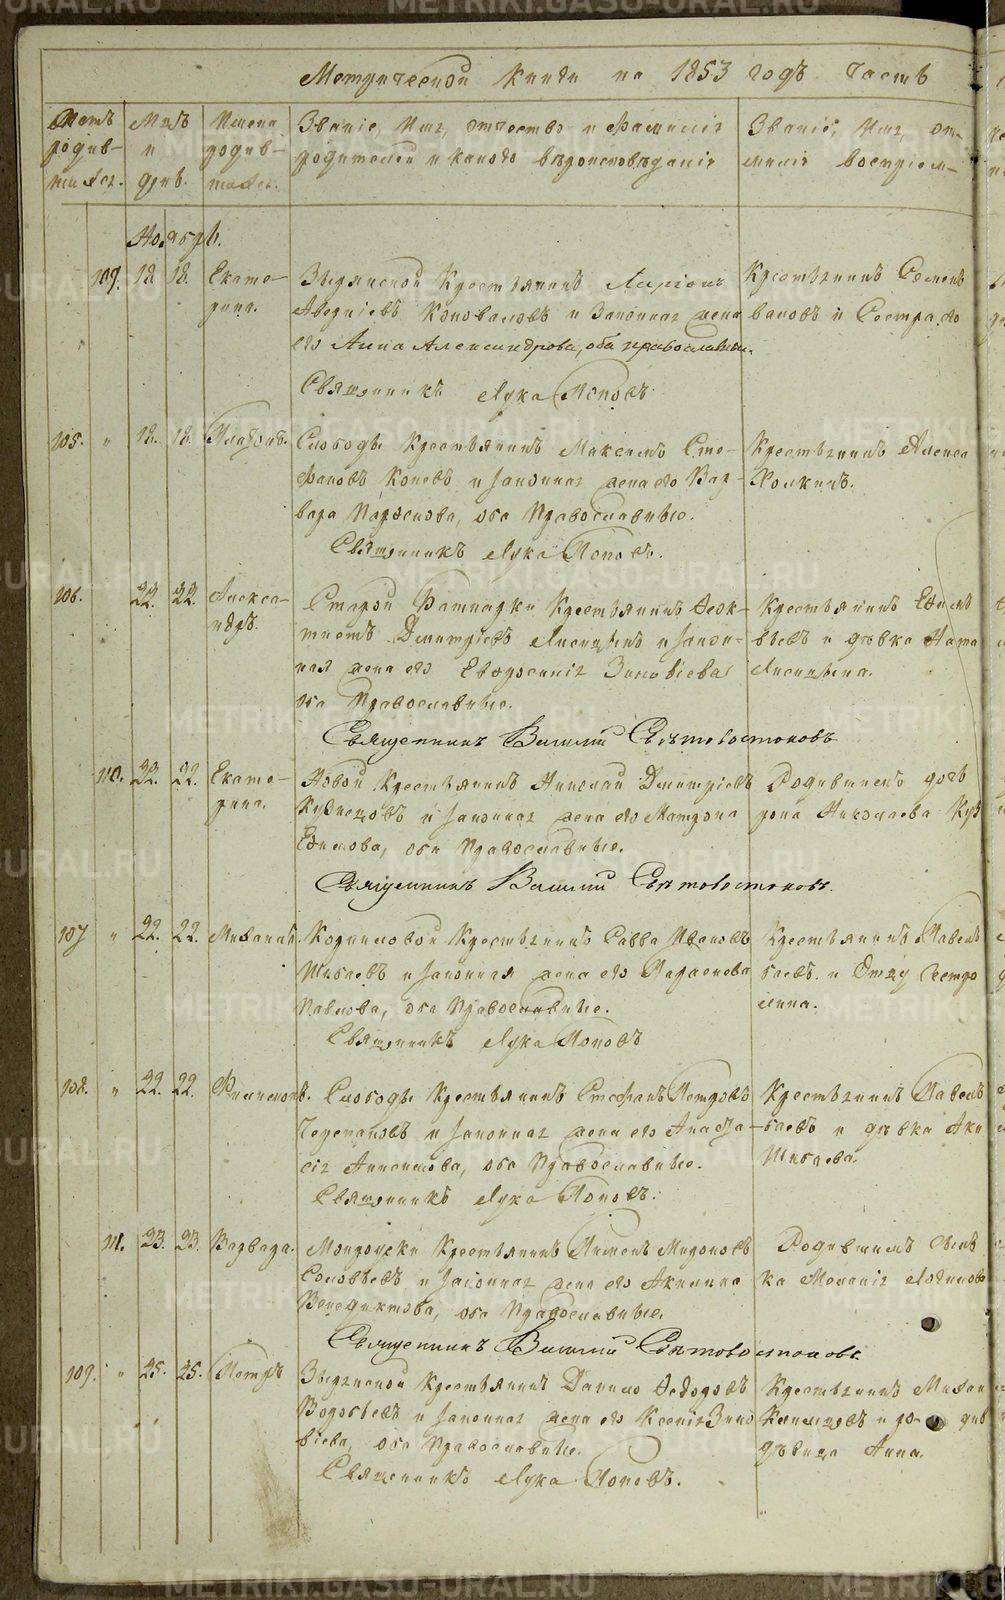 Метрической книги на 1853 годъ часть
Счетъ родив- шихся.
Мцъ и день.
Имена родив- шихся.
Званіе, Имя, отчество и фамилія родителей и какого вѣроисповѣданія
Званіе, Имя, от-
милія воспріем-
Ноябрь.
109. 18. 18. Екате- рина.
Крестьянинъ
Коноваловъ и законная жена
его Анна Александрова, оба православные.
Священникъ Лука Поповъ
Крестьянинъ Семенъ
валовъ и Сестра его
105. " 18. 18. Платонъ.
Слобод. Крестьянинъ Максимъ Сте-
фановъ Коневъ и законная жена его Вар-
вара Парфенова, оба Православные.
Священникъ Лука Поповъ.
Крестьянинъ Алекса
Фомкинъ.
106. 22. 22. Алекса- ндръ.
Старой Крестьянинъ Феок-
тистъ Дмитріевъ Лисицынъ и закон-
ная жена его Евфросинія Зиновіева
оба Православные.
Священникъ Василій Свѣтовостоковъ
Крестьянинъ Ефимъ
и дѣвка Ната
Лисицына.
110. 22. 22. Екате- рина.
Новой Крестьянинъ Николай Дмитріевъ
Кузнецовъ и законная жена его Матрона
Ефимова, оба Православные.
Священникъ Василій Свѣтовостоковъ.
Родившимъ дочь
рона Николаева Куз
107 " 22. 22. Михаилъ.
Корниловой Крестьянинъ Савва Ивановъ
Шибаевъ и законная жена его
Павлова, оба Православные.
Священникъ Лука Поповъ
Крестьянинъ Павелъ
баевъ и
108. " 22. 22. Филимонъ.
Слобод. Крестьянинъ Стефанъ Петровъ
Черепановъ и законная жена его Анаста-
сія Анисимова, оба Православные.
Священникъ Лука Поповъ.
Крестьянинъ Павелъ
баевъ и дѣвка Аки
Шибаева.
111. 23. 23. Варвара.
Крестьянинъ Пименъ Мироновъ
Соловьевъ и законная жена его Акилина
Венедиктова, оба Православные.
Священникъ Василій Свѣтовостоковъ.
Родившимъ
ка Меланія Логинова
109. " 25. 25. Петръ
Крестьянинъ Данило Федоровъ
и законная жена его Ксенія Зино
віева, оба Православные.
Священникъ Лука Поповъ.
Крестьянинъ Михаи
и
дѣвица Анна.
METRIKI.GASO-URAL.RU